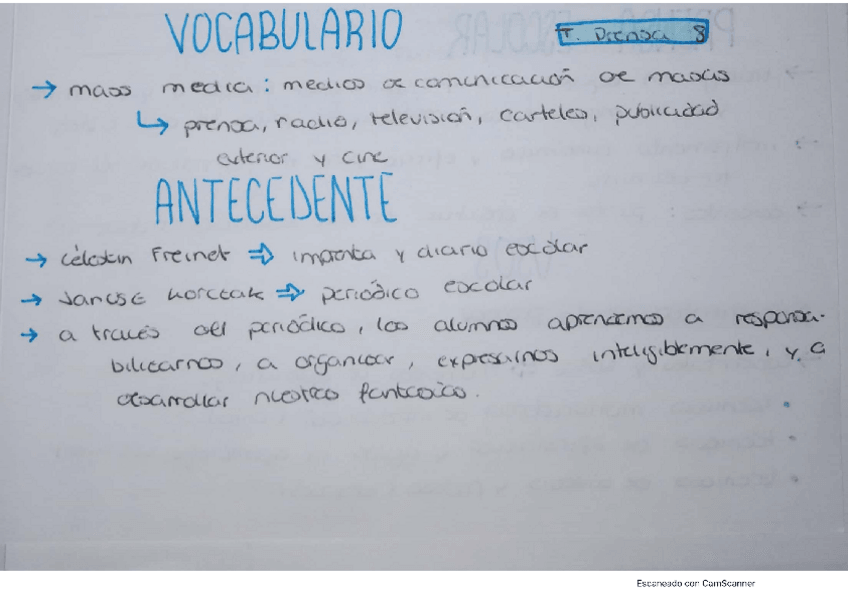 VOCABULARIO
T. Prensa 8
→ mass media: medios de comunicación de masas
↳ prensa, radio, televisión, carteles, publicidad
exterior y cine
ANTECEDENTE
→ Célestin Freinet ⇒ imprenta y diario escolar
→ Janusz Korczak ⇒ periódico escolar
→ a través del periódico, los alumnos aprendemos a responsa-
bilizarnos, a organizar, expresarnos inteligiblemente, y a
desarrollar nuestras fantasías.
Escaneado con CamScanner